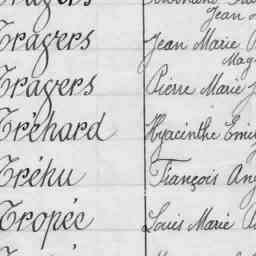 Jean
Tragers Jean Marie
Tragers Pierre Marie
Tréhard Hyacinthe
Tréhu François
Tropée Louis Marie